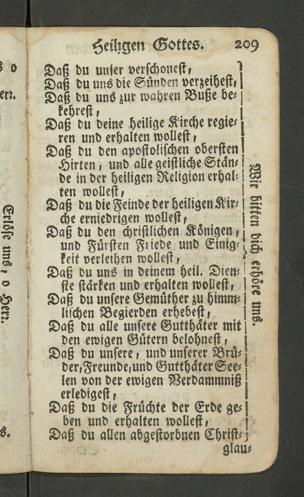 Heiligen Gottes. 209
Daß du unser verschonest,
Daß du uns die Sünden verzeihest,
Daß du uns zur wahren Buße be-
kehrest,
Daß du deine heilige Kirche regie-
ren und erhalten wollest,
Daß du den apostolischen obersten
Hirten, und alle geistliche Stän-
de in der heiligen Religion erhal-
ten wollest,
Daß du die Feinde der heiligen Kir-
che erniedrigen wollest,
Daß du den christlichen Königen,
und Fürsten Friede und Einig-
keit verleihen wollest,
Daß du uns in deinem heil. Dien-
ste stärken und erhalten wollest,
Daß du unsere Gemüther zu himm-
lichen Begierden erhebest,
Daß du alle unsere Gutthäter mit
den ewigen Gütern belohnest,
Daß du unsere, und unserer Brü-
der, Freunde, und Gutthäter See-
len von der ewigen Verdammniß
erledigest,
Daß du die Früchte der Erde ge-
ben und erhalten wollest,
Daß du allen abgestorbnen Christ-
glau-
Wir bitten dich, erhöre uns.
Erlöse uns, o Herr.